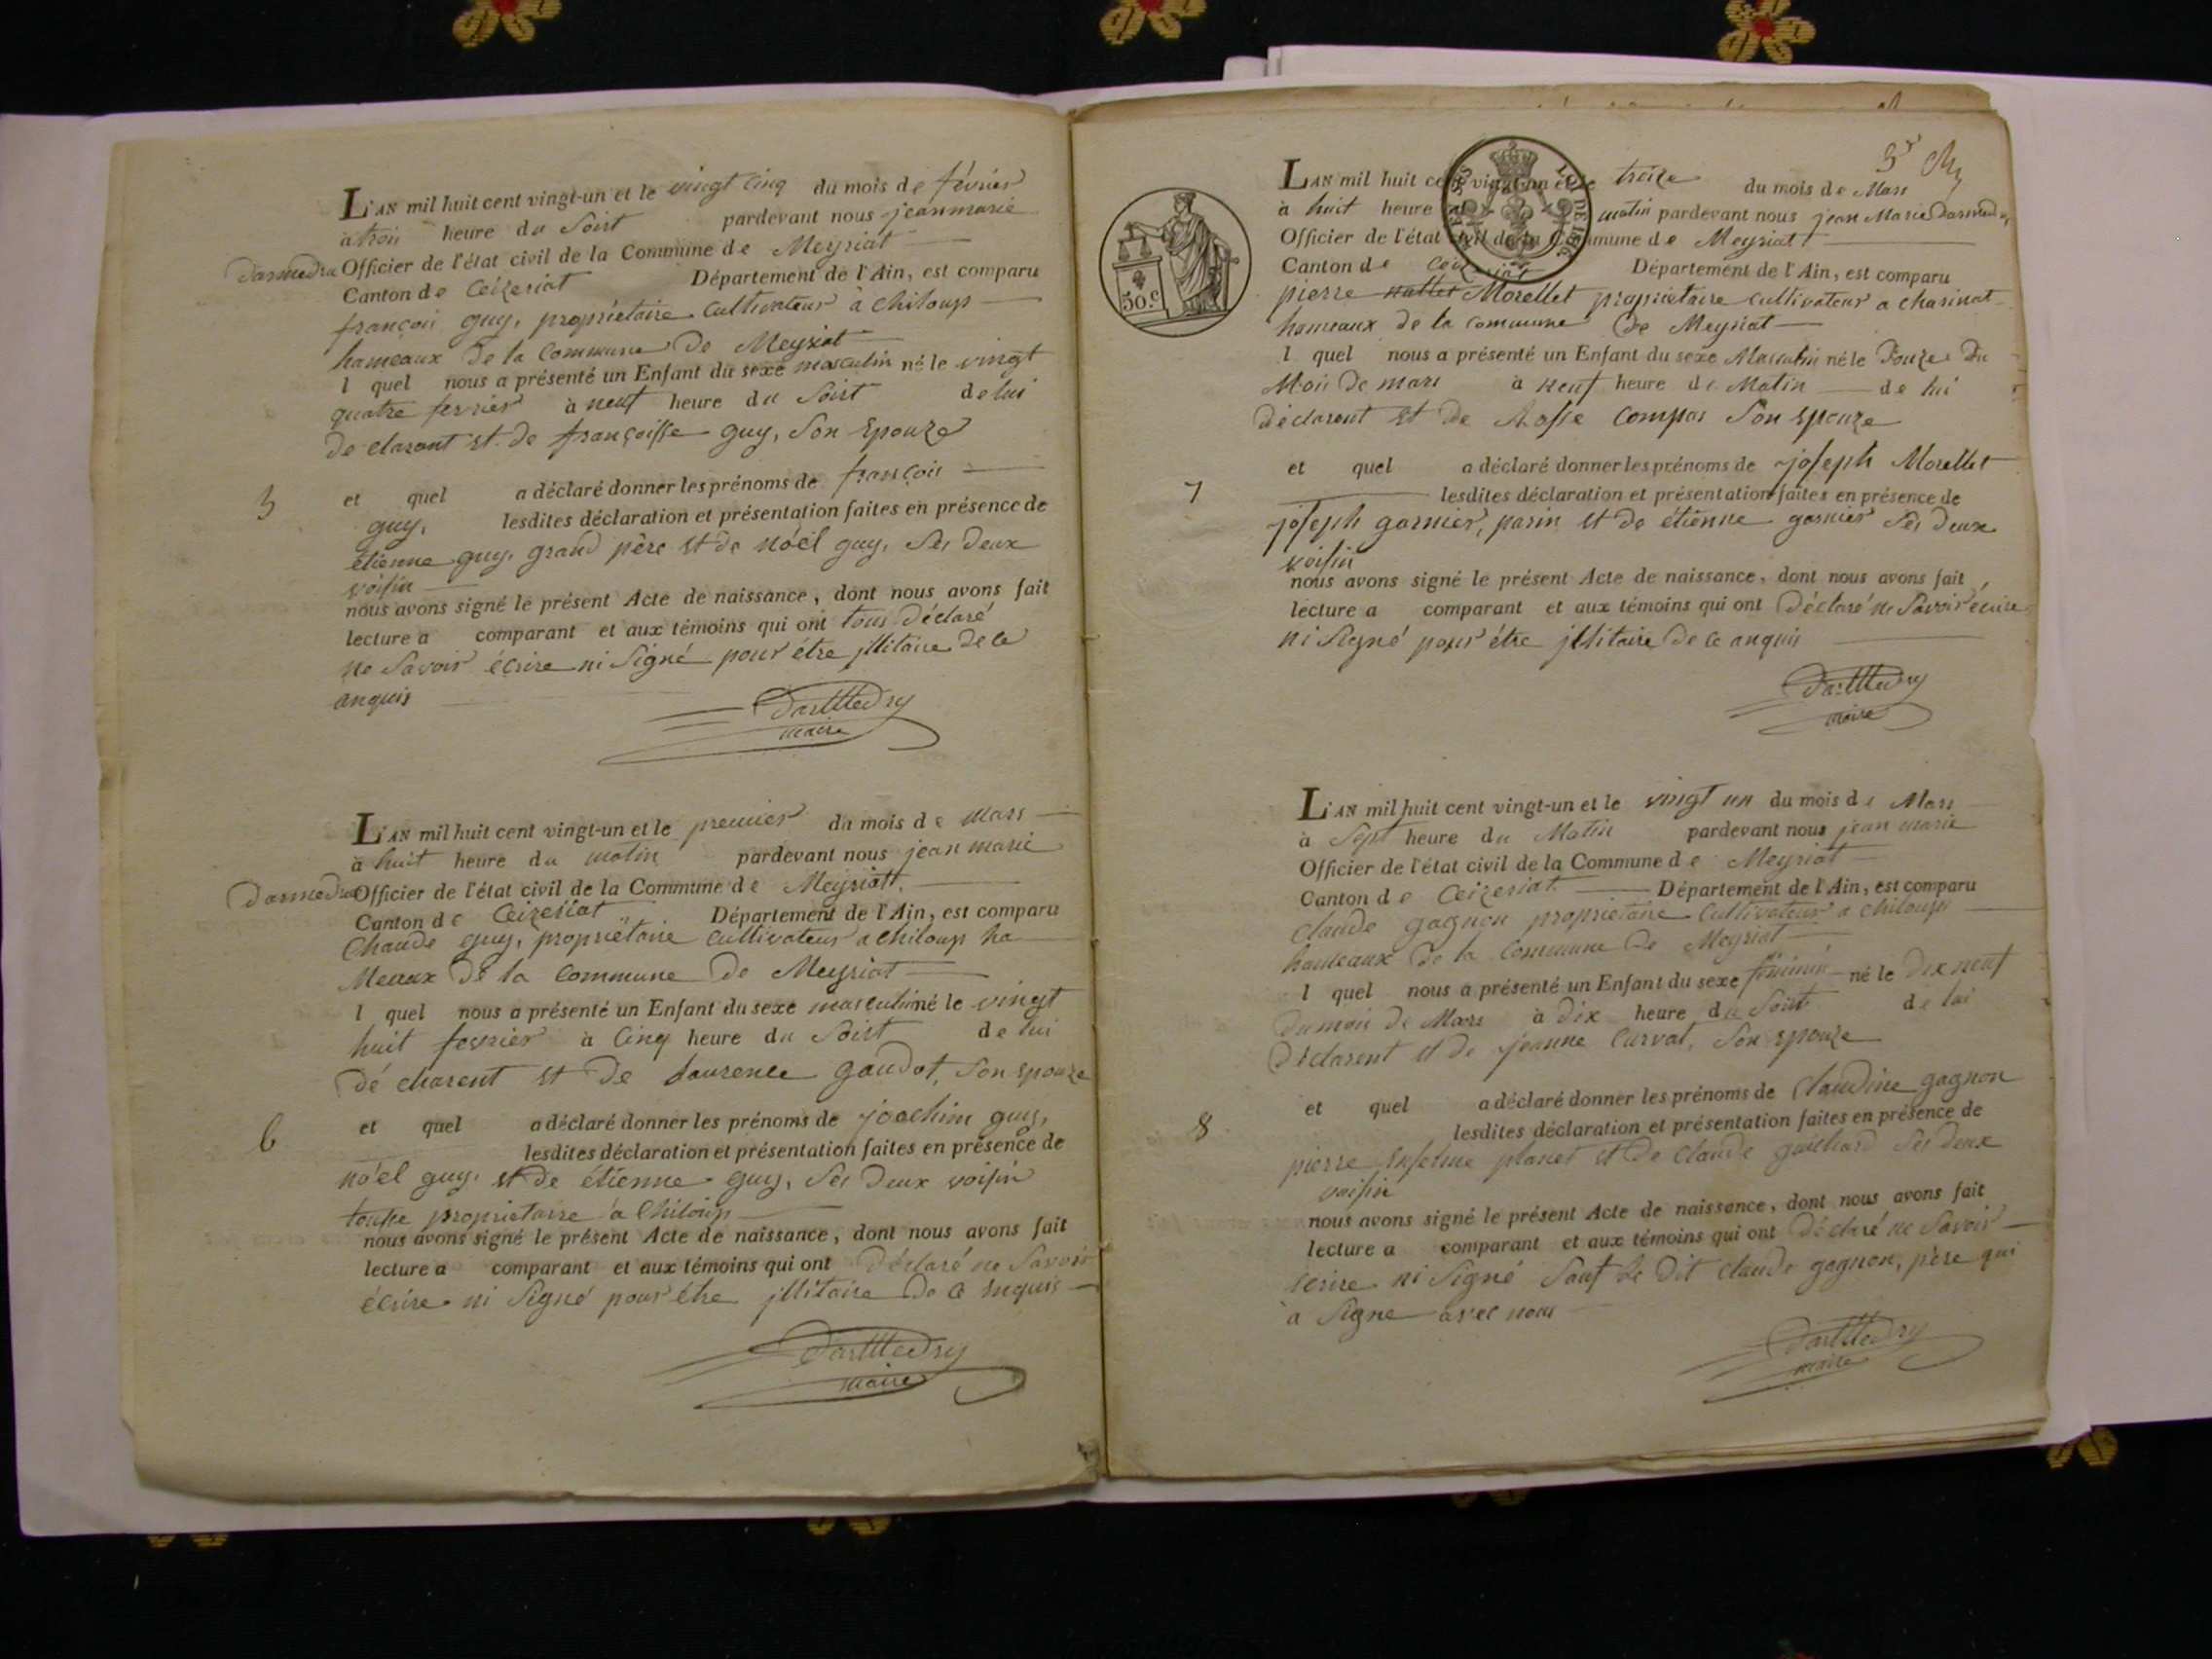 L'AN mil huit cent vingt-un et le vingt cinq du mois de février
à troii heure du Soirt pardevant nous jean marie
Darmedru Officier de l'état civil de la Commune de Meyriat
Canton de Ceizeriat Département de l'Ain, est comparu
françoii guy, propriétaire Cultivateur à Chiloup
hameaux de la Commune De Meyriat
l quel nous a présenté un Enfant du sexe masculin né le vingt
quatre fevrier à neuf heure du Soirt de lui
De clarant et de françoisse guy, Son Epouze
5
et quel a déclaré donner les prénoms de françoii
guy, lesdites déclaration et présentation faites en présence de
étienne guy, grand père et de nöel guy, Ses Deux
voisin
nous avons signé le présent Acte de naissance, dont nous avons fait
lecture a comparant et aux témoins qui ont tous Déclaré
ne Savoir écrire ni Signé pour étre jllitaire De ce
anquis
DarMedry
maire
L'AN mil huit cent vingt-un et le premier du mois de mars
à huit heure du matin pardevant nous jean marie
Darmedru Officier de l'état civil de la Commune de Meyriatt
Canton de Ceizeriat Département de l'Ain, est comparu
Chaude guy, propriétaire Cultivateur a Chiloup ha
Meaux De la Commune De Meyriat
l quel nous a présenté un Enfant du sexe masculin né le vingt
huit fevrier à Cinq heure du Soirt de lui
Dé charent et De Laurence gaudot, Son epouze
6
et quel a déclaré donner les prénoms de joachim guy,
lesdites déclaration et présentation faites en présence de
nöel guy, et De étienne guy, Ses Deux voisin
propriétaire à Chiloup
nous avons signé le présent Acte de naissance, dont nous avons fait
lecture a comparant et aux témoins qui ont Déclaré ne Savoir
écrire ni Signé pour étre jllitaire De ce Enquis
DarMedry
maire
L'AN mil huit cent vingt-un et le treize du mois de Mars
à huit heure matin pardevant nous jean Marie Darmedru
Officier de l'état civil de la Commune de Meyriat
Canton de Ceizeriat Département de l'Ain, est comparu
pierre Morellet propriétaire Cultivateur a Charinat
hameaux de la commune De Meyriat
l quel nous a présenté un Enfant du sexe Masculin né le Douze Du
Moii De mars à neuf heure de Matin de lui
Déclarent et De Rosse Compas Son Epouze
7
et quel a déclaré donner les prénoms de joseph Morellet
lesdites déclaration et présentation faites en présence de
joseph garnier, parin et De étienne garnier Ses deux
voisin
nous avons signé le présent Acte de naissance, dont nous avons fait
lecture a comparant et aux témoins qui ont Déclaré ne Savoir écrire
ni Signé pour étre jllitaire De ce anquis
DarMedry
maire
50.c
L'AN mil huit cent vingt-un et le vingt un du mois de Mars
à Sept heure du Matin pardevant nous jean marie
Officier de l'état civil de la Commune de Meyriat
Canton de Ceizeriat Département de l'Ain, est comparu
Claude gagnon propriétaire Cultivateur a Chiloup
hameaux De la Commune De Meyriat
l quel nous a présenté un Enfant du sexe féminin né le Dix neuf
Du moii De Mars à Dix heure du Soirt de lui
Déclarent et De jeanne Curvat, Son Epouze
8
et quel a déclaré donner les prénoms de Claudine gagnon
lesdites déclaration et présentation faites en présence de
pierre Enselme planet et De Claude Ses Deux
voisin
nous avons signé le présent Acte de naissance, dont nous avons fait
lecture a comparant et aux témoins qui ont Déclaré ne Savoir
écrire ni Signé Sauf Le Dit Claude gagnon, père qui
a Signe avec nous
DarMedry
maire